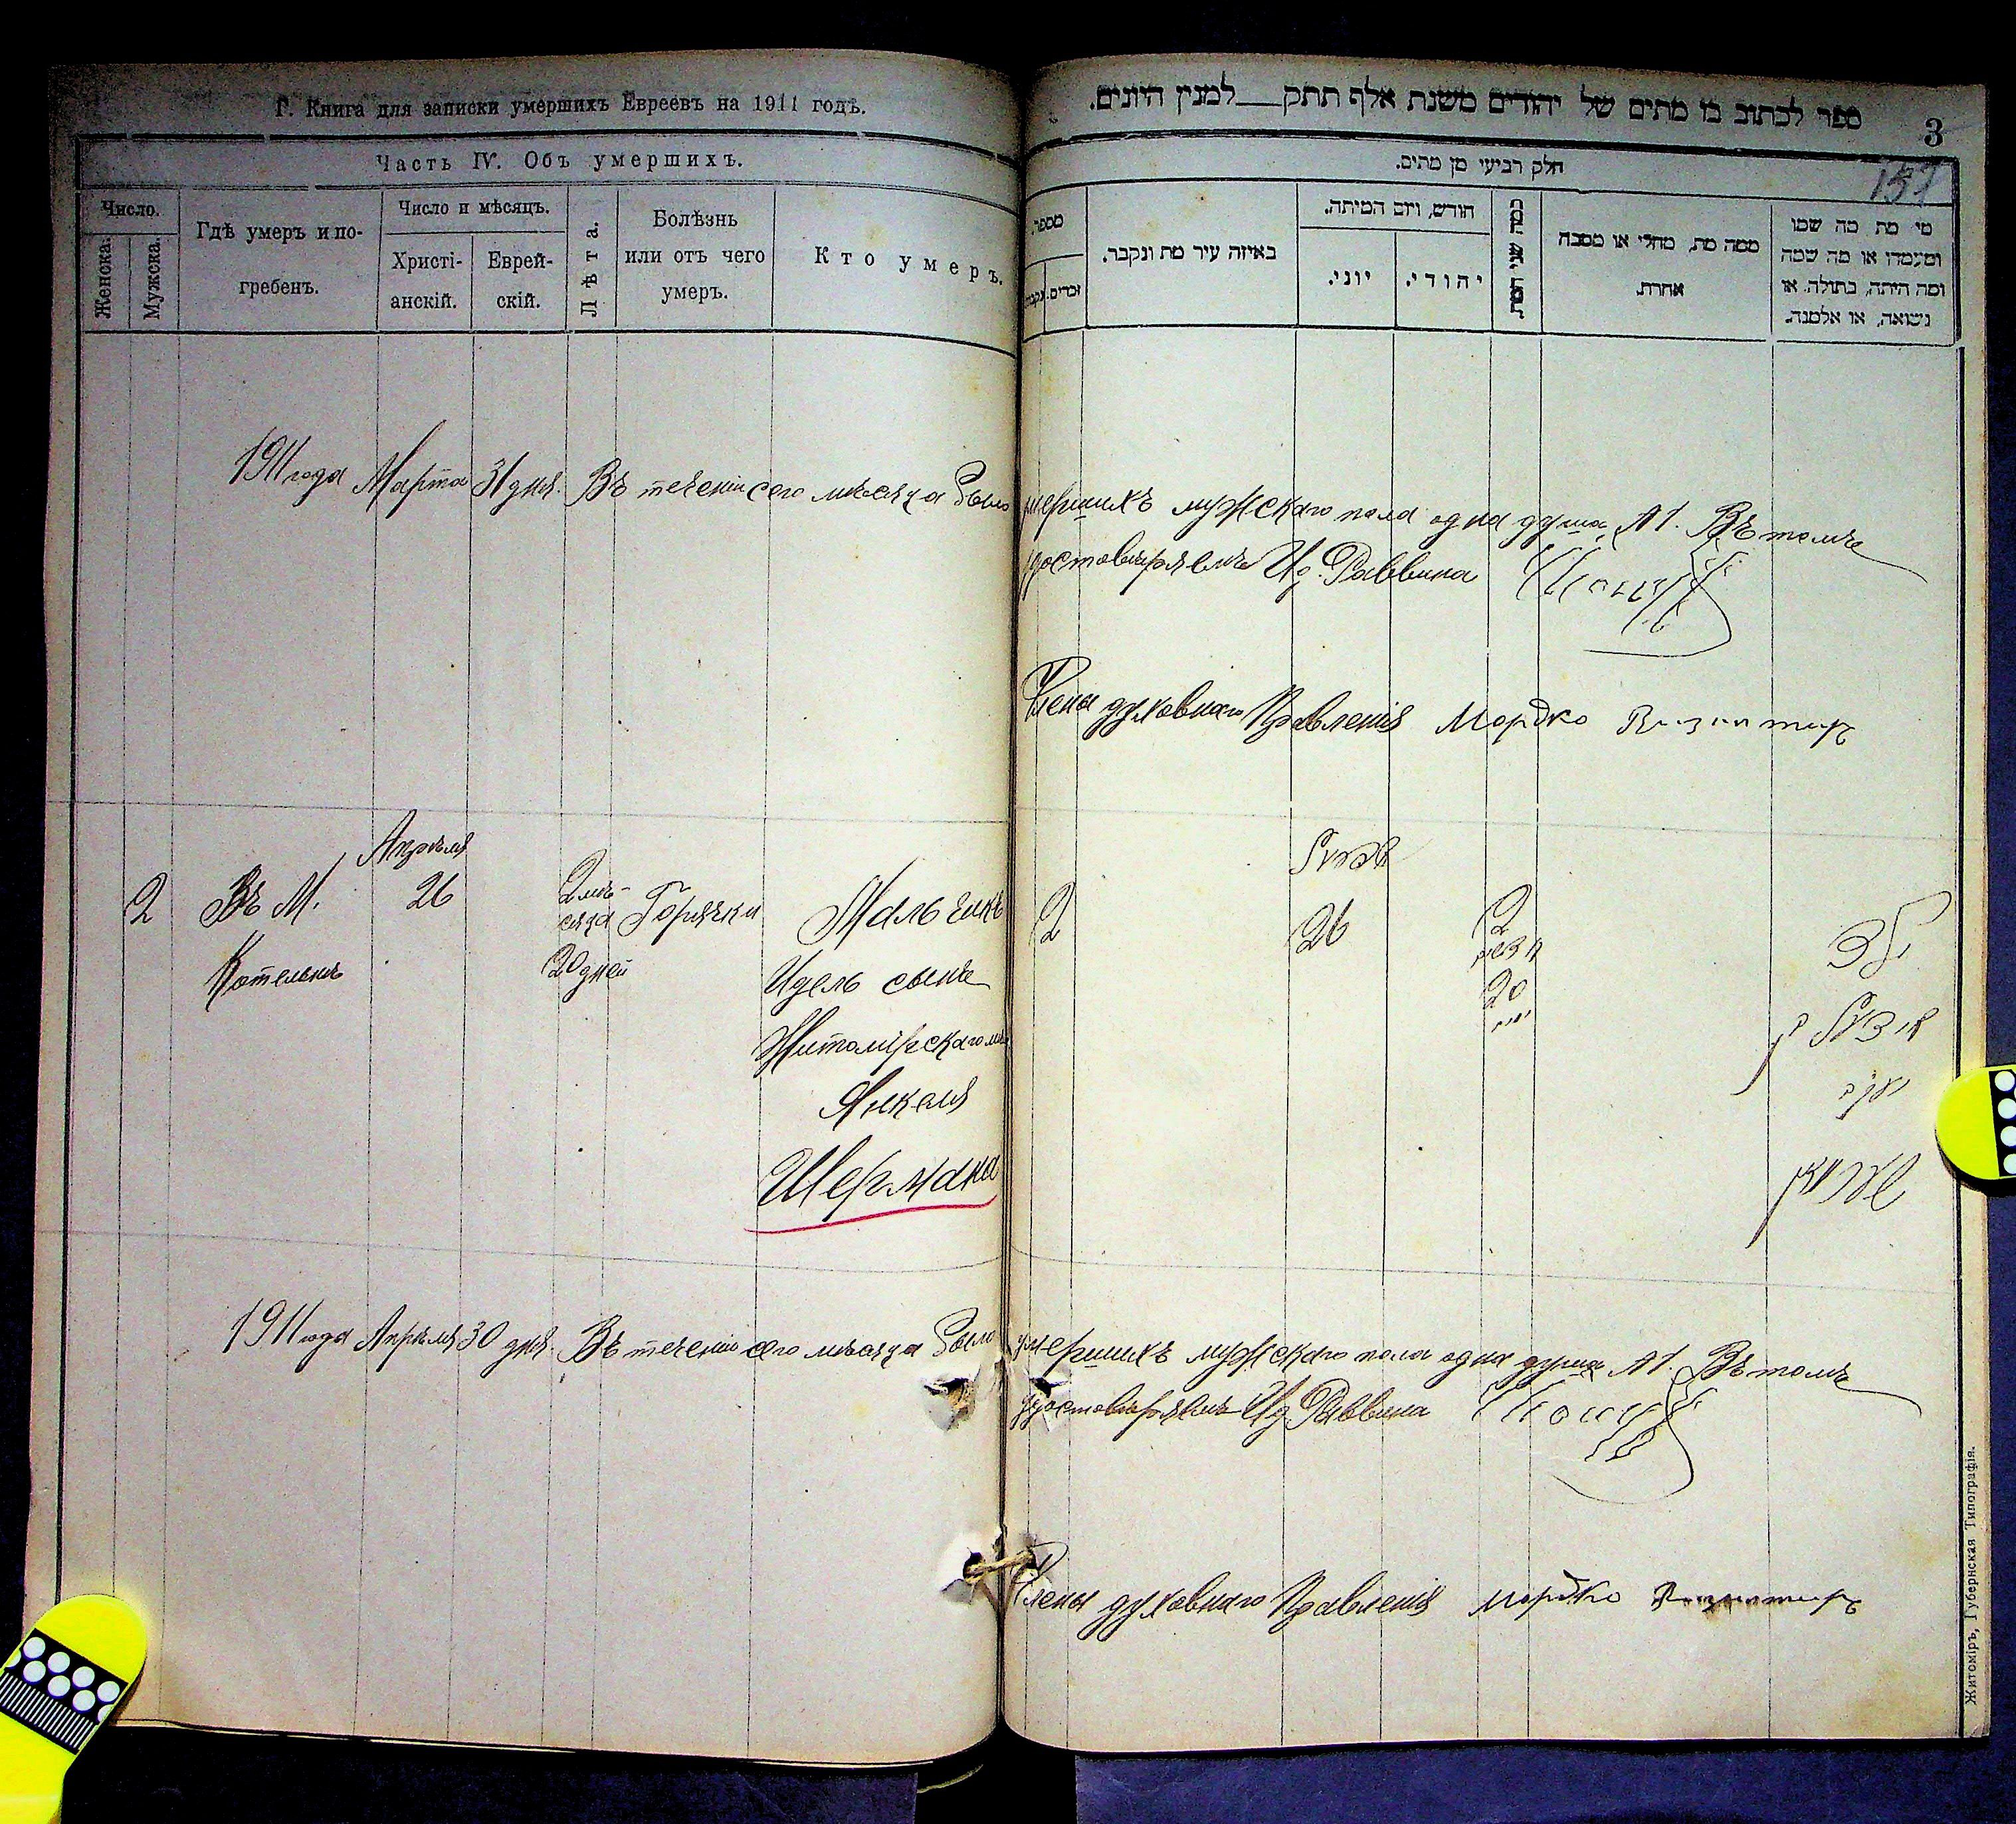 Г. Книга для записки умершихъ Евреевъ на 1911 годъ.
Часть IV. Объ умершихъ.
Число.
Женска.
Мужска.
Гдѣ умеръ и по-
гребенъ.
Число и мѣсяцъ.
Христі-
анскій.
Еврей-
скій.
Лѣта.
Болѣзнь
или отъ чего
умеръ.
Кто умеръ.
ספר לכתוב בו מתים של יהודים משנת אלף תתק למנין היונים.
3
157
חלק רביעי מן מתים.
מספר.
זכרים.
באיזה עיר מת ונקבר.
חודש, ויום המיתה.
יוני.
יהודי.
כמה שני המת
ממה מת, מחלי או מסבה
אחרת.
מי מת מה שמו
ומעמדו או מה שמה
ומה היתה, בתולה, או
נשואה, או אלמנה.
1911 года Марта 31 дня. Въ теченіи сего мѣсяца было умершихъ мужскаго пола одна душа, М 1. Въ томъ
удостовѣряемъ И д. Раввина
Члены духовнаго Правленія Мордко
Апрѣля
2 Въ М. 26 2 мѣ- Горячки Мальчикъ
сяца
Котельнѣ 20 дней Идель сынъ
Житомірскаго мѣщ
Янкеля
Шермана
2 26 2
20
ילד
יודל בן
יענקל
שערמאן
1911 года Апрѣля 30 дня. Въ теченіи сего мѣсяца было умершихъ мужскаго пола одна душа М 1. Въ томъ
удостовѣряемъ И д Раввина
Члены духовнаго Правленія Мордко
Житоміръ, Губернская Типографія.